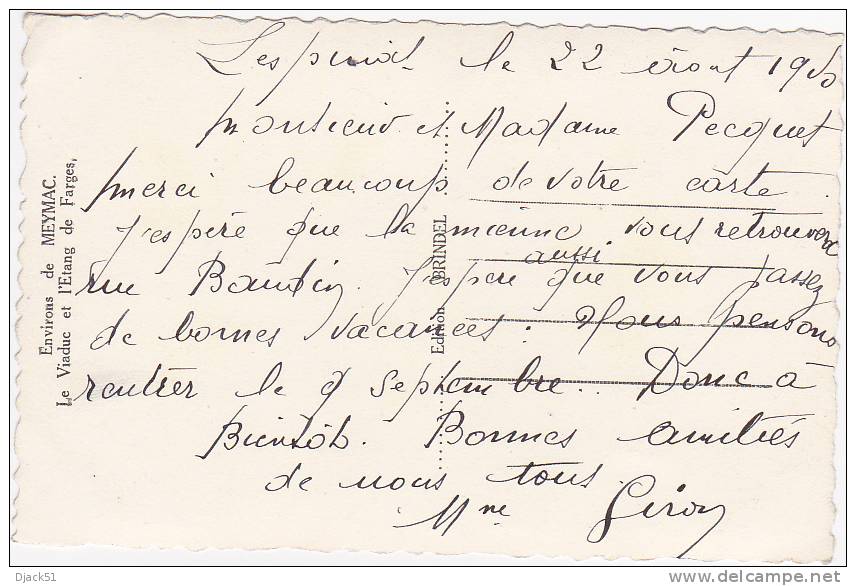 le 22 août 1950
Monsieur et Madame Pecquet
merci beaucoup de votre carte
J'espère que la mienne vous retrouvera
aussi
rue Baudin. J'espere que vous passez
de bonnes vacances. Nous pensons
rentrer le 9 Septembre.. Donc à
Bientôt. Bonnes amitiés
de nous tous.
Mme Giron
Environs de MEYMAC.
Le Viaduc et l'Etang de Farges,
Edition BRINDEL
Djack51
delcampe.net